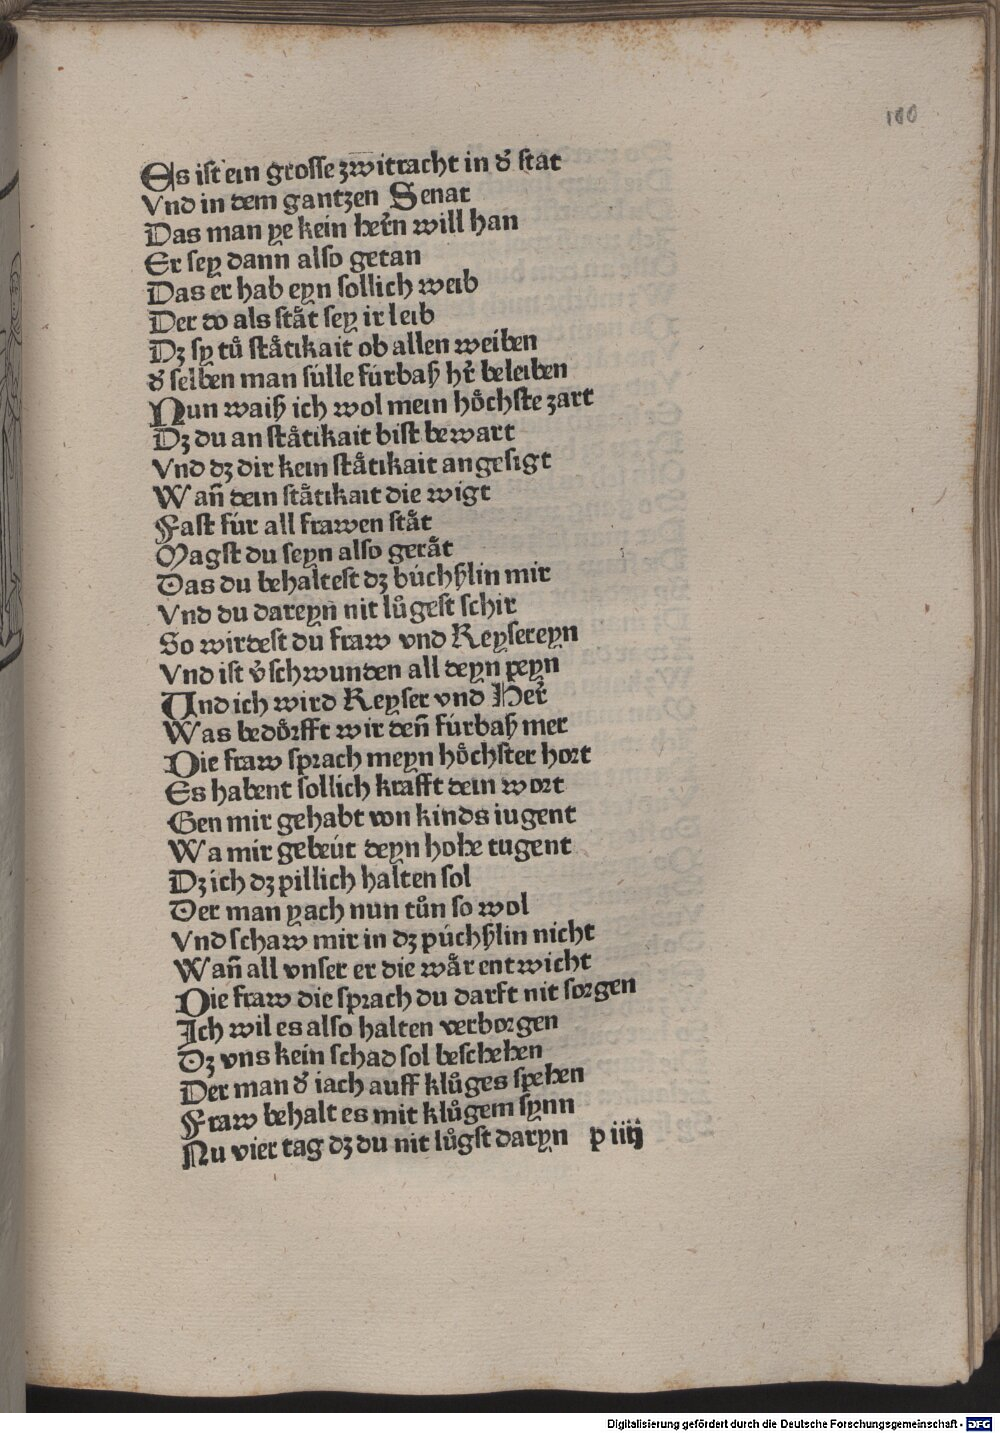 100
Es ist ein grosse zwitracht in d̕ stat
Vnd in dem gantzen Senat
Das man ye kein herr̄n will han
Er sey dann also getan
Das er hab eyn sollich weib
Der do als ståt sey ir leib
Dz sy tů ståtikait ob allen weiben
d̕ selben man sülle fúrbaß hr̄ beleiben
Nun waiß ich wol mein hőchste zart
Dz du an ståtikait bist bewart
Vnd dz dir kein ståtikait angesigt
Wan̄ dein ståtikait die wigt
Fast fúr all frawen ståt
Magst du seyn also geråt
Das du behaltest dz búchßlin mir
Vnd du dareyn nit lůgest schir
So wirdest du fraw vnd Keysereyn
Vnd ist v̕schwunden all deyn peyn
Und ich wird Keyser vnd Her̄
Was bedőrfft wir den̄ fúrbaß mer
Die fraw sprach meyn hőchster hort
Es habent sollich krafft dein wort
Gen mir gehabt von kinds iugent
Wa mir gebeút deyn hohe tugent
Dz ich dz pillich halten sol
Der man yach nun tůn so wol
Vnd schaw mir in dz púchßlin nicht
Wan̄ all vnser er die wår entwicht
Die fraw die sprach du darft nit sorgen
Ich wil es also halten verborgen
Dz vns kein schad sol beschehen
Der man d̕ iach auff klůges spehen
Fraw behalt es mit klůgem synn
Nu vier tag dz du nit lůgst daryn p iiij
Digitalisierung gefördert durch die Deutsche Forschungsgemeinschaft - DFG